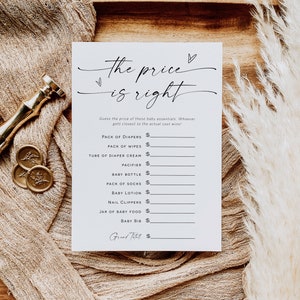 the price
is right
Guess the price of these baby essentials. Whoever
gets closest to the actual cost wins!
PACK OF DIAPERS $
PACK OF WIPES $
TUBE OF DIAPER CREAM $
PACIFIER $
BABY BOTTLE $
PACK OF SOCKS $
BABY LOTION $
NAIL CLIPPERS $
JAR OF BABY FOOD $
BABY BIB $
Grand Total $